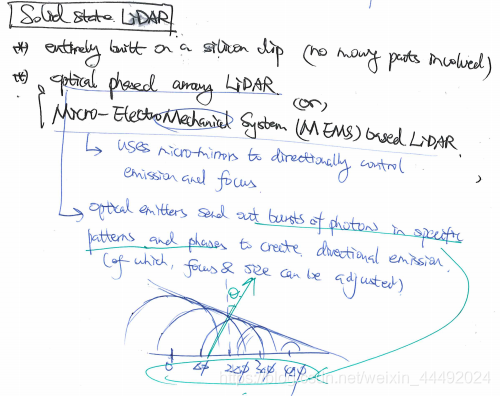 Solid state LiDAR
*) entirely built on a silicon chip (no moving parts involved)
*) optical phased array LiDAR
(or)
Micro-ElectroMechanical System (MEMS) based LiDAR.
↳ uses micro-mirrors to directionally control
emission and focus.
↳ optical emitters send out bursts of photons in specific
patterns and phases to create directional emission.
(of which, focus & size can be adjusted)
θ
0 Δϕ 2Δϕ 3Δϕ 4Δϕ